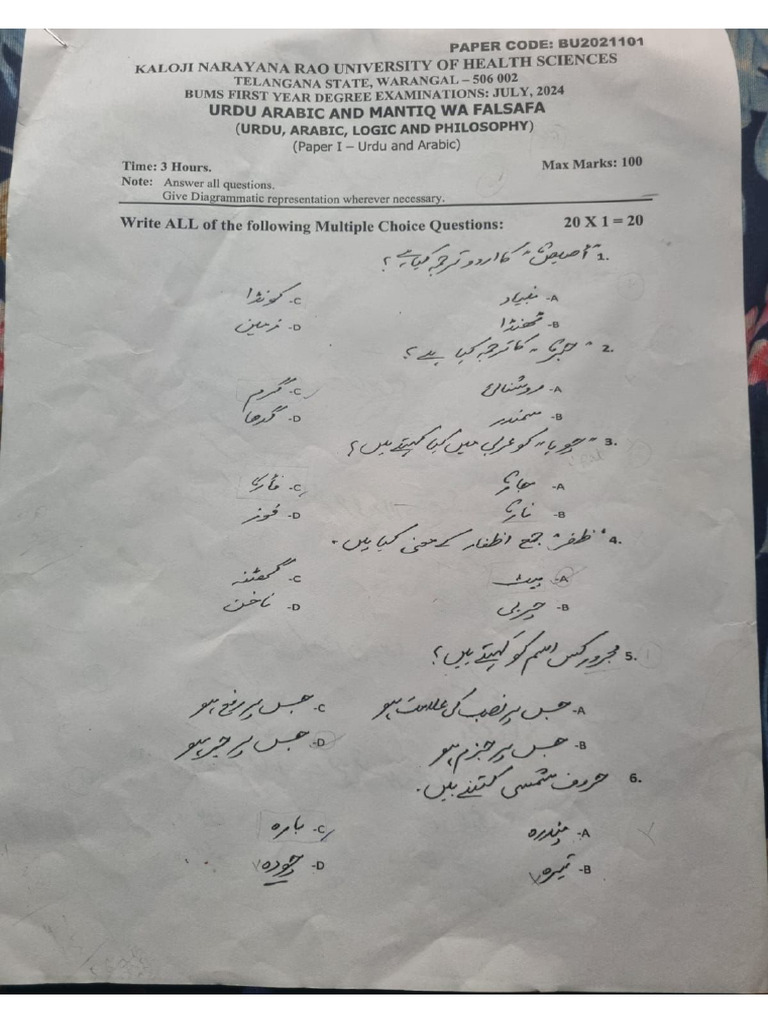 PAPER CODE: BU2021101
KALOJI NARAYANA RAO UNIVERSITY OF HEALTH SCIENCES
TELANGANA STATE, WARANGAL – 506 002
BUMS FIRST YEAR DEGREE EXAMINATIONS: JULY, 2024
URDU ARABIC AND MANTIQ WA FALSAFA
(URDU, ARABIC, LOGIC AND PHILOSOPHY)
(Paper I – Urdu and Arabic)
Time: 3 Hours. Max Marks: 100
Note: Answer all questions.
Give Diagrammatic representation wherever necessary.
Write ALL of the following Multiple Choice Questions: 20 X 1 = 20
1. "أصيص" کا اردو ترجمہ کیا ہے؟
A- بنیاد C- کونڈا
B- ٹھنڈا D- زمین
2. کا ترجمہ کیا ہے؟
A- روشنائی C- گرم
B- سمندر D- گدھا
3. "چوہا" کو عربی میں کیا کہتے ہیں؟
A- C- فأرة
B- نارة D- فوز
4. "ظفر" جمع اظفار کے معنی کیا ہیں۔
A- پیٹ C- گھٹنہ
B- چربی D- ناخن
5. مجرور کس اسم کو کہتے ہیں؟
A- جس پر نصب کی علامت ہو C- جس پر رفع ہو
B- جس پر جزم ہو D- جس پر جر ہو
6. حروف شمسی کتنے ہیں۔
A- پندرہ C- بارہ
B- تیرہ D- چودہ